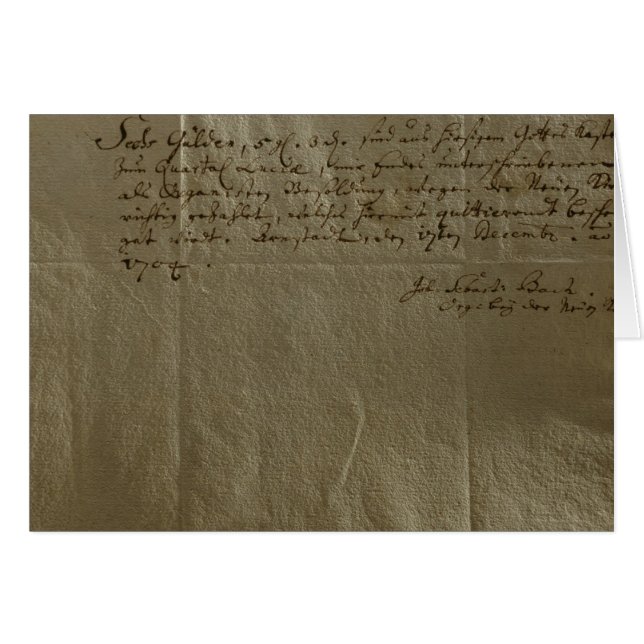 Sechs Gülden, 5 gl. 3 d. sind aus hiesigem Gottes Kaste
Zum Quartal Luciæ, mir Endes unterschriebenen
als Organisten Besoldung, wegen der Neuen
richtig gezahlet, welches hiermit quittierendt besche
get wirdt. Arnstadt, den 17ten Decembr. ao
1704.
Joh. Sebast: Bach.
Org: bey der Neuen